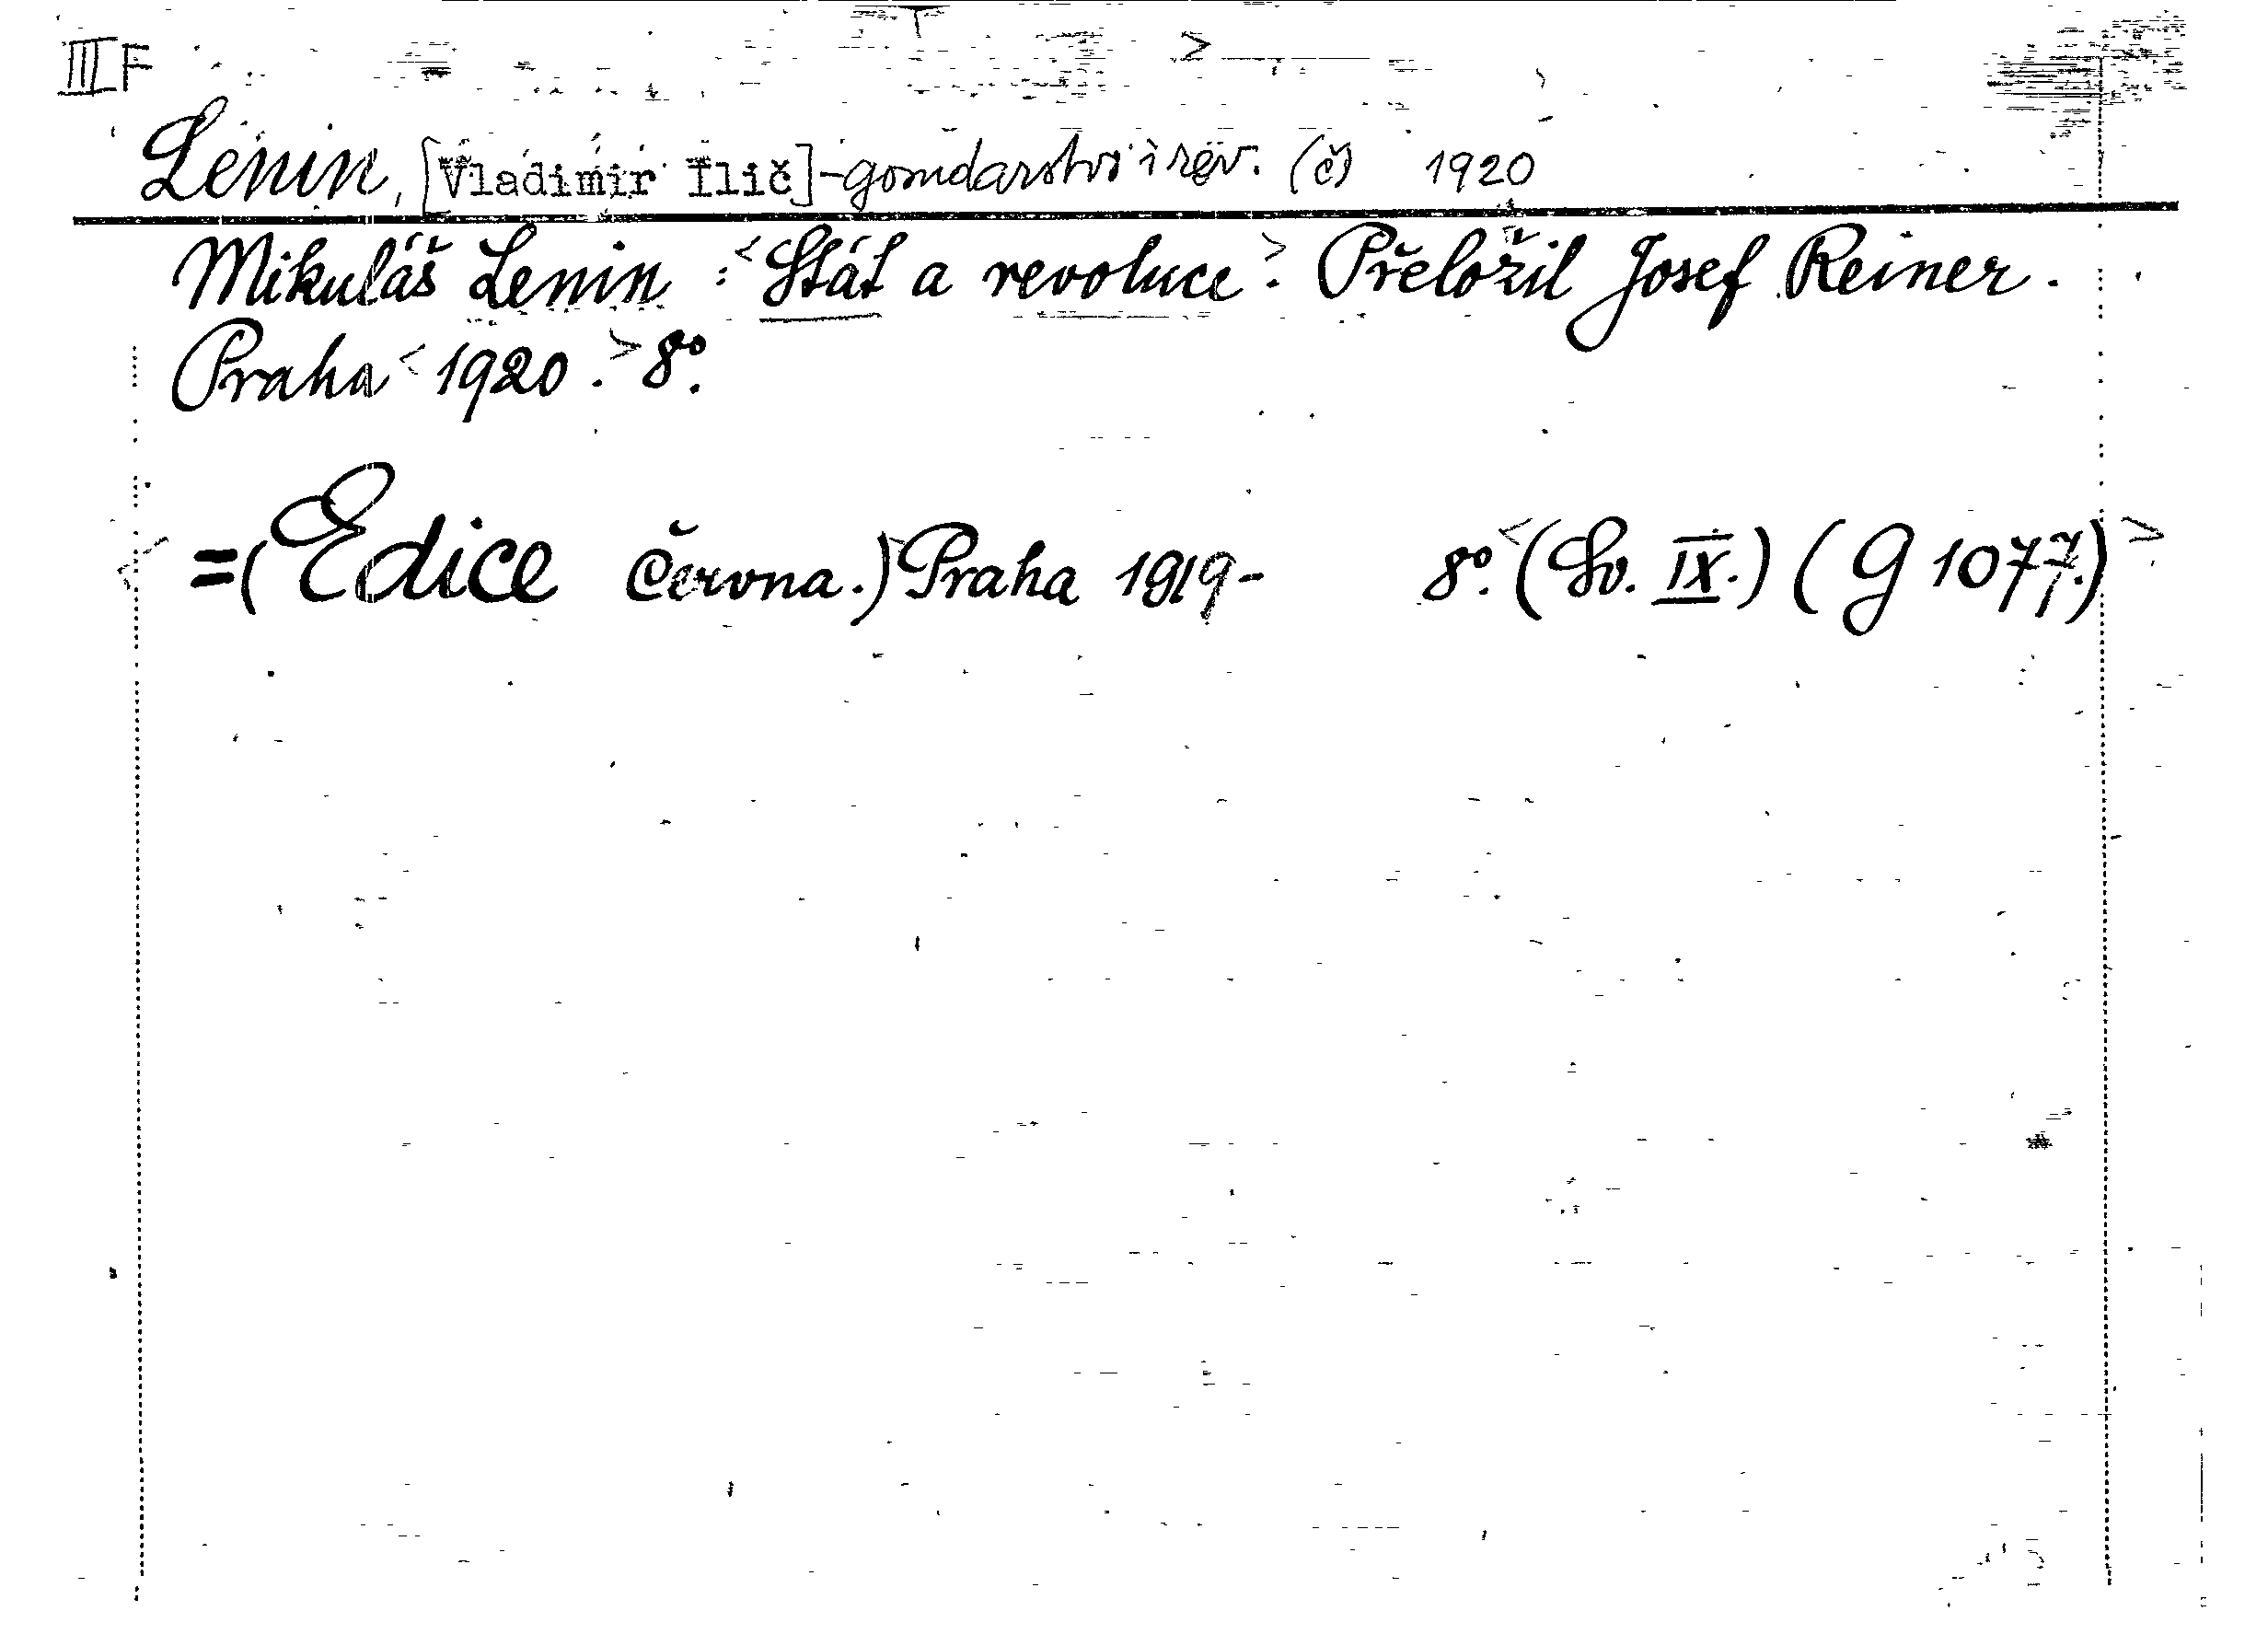 III F
Lenin, [Vladimir Ilič]-gosudarstvo i rev. (č) 1920
Mikuláš Lenin: <Stát a revoluce>. Přeložil Josef Reiner.
Praha <1920.> 8°.
<=(Edice Června.) Praha 1919- 8°. <(Sv. IX.) (G 1077.)>